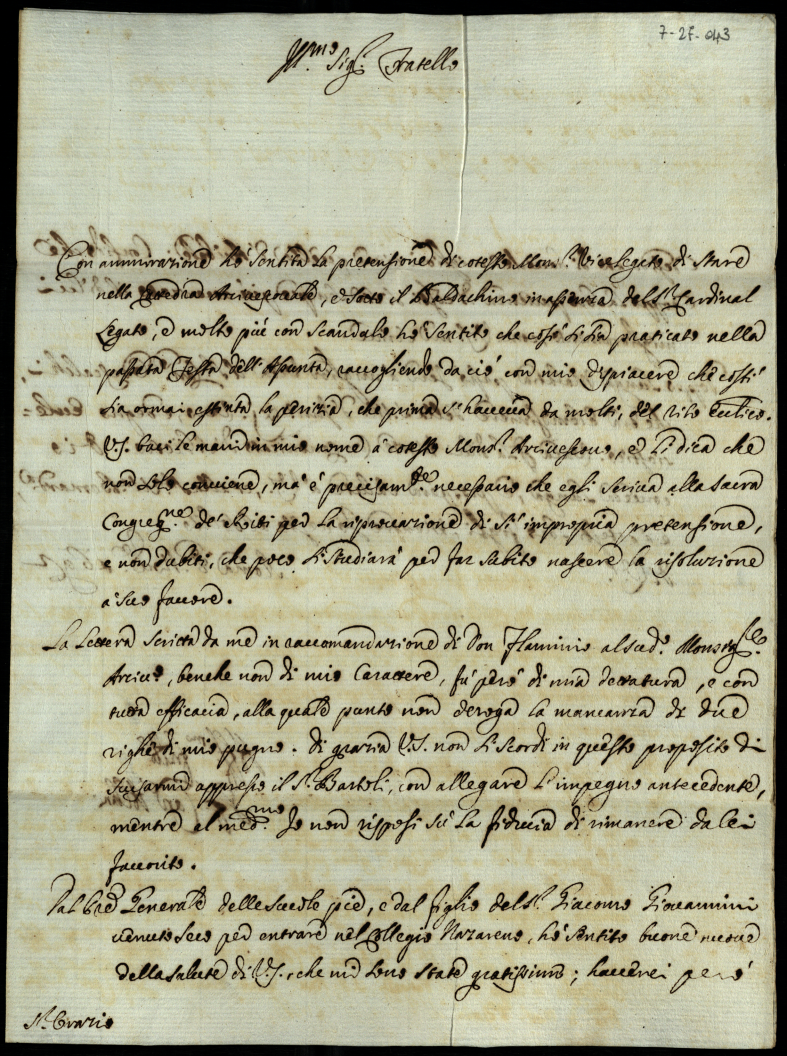 7-27-043
Ill.mo Sig.r Fratello
Con ammirazione hò sentita la pretensione di cotesto Mons.r Vicelegato di stare
nella Catedra Arcivescovale, e sotto il Baldachino in assenza del S.r Cardinal
Legato, e molto più con scandalo hò sentito che così si sia praticato nella
passata Festa dell'Assunta, raccogliendo da ciò con mio dispiacere che costì
sia ormai estinta la perizia, che prima si haveva da molti, del rito Eccl.ico.
V.S. baci le mani in mio nome à cotesto Mons.r Arcivescovo, e li dica che
non solo conviene, mà è precisam.te necessario che egli scriva alla Sacra
Congreg.ne de' Riti per la riprovazione di sì impropria pretensione,
e non dubiti, che poco si studiarà per far subito nascere la risoluzione
à suo favore.
La lettera scritta da me in raccomandazione di Don Flaminio al sud.o Monsig.re
Arciv.o, benche non di mio Carattere, fù però di mia dettatura, e con
tutta efficacia, alla quale punto non deroga la mancanza di due
righe di mio pugno. Di grazia V.S. non si scordi in questo proposito di
scusarmi appresso il S.r Bartoli, con allegare l'impegno antecedente,
mentre al med.mo Io non risposi sù la fiducia di rimanere da lei
favorito.
Dal Pre Generale delle scuole pie, e dal figlio del S.r Giacomo Giovannini
venuto seco per entrare nel Collegio Nazareno, hò sentito buone nuove
della salute di V.S., che mi sono state gratissime; haverei però
S.r Orazio